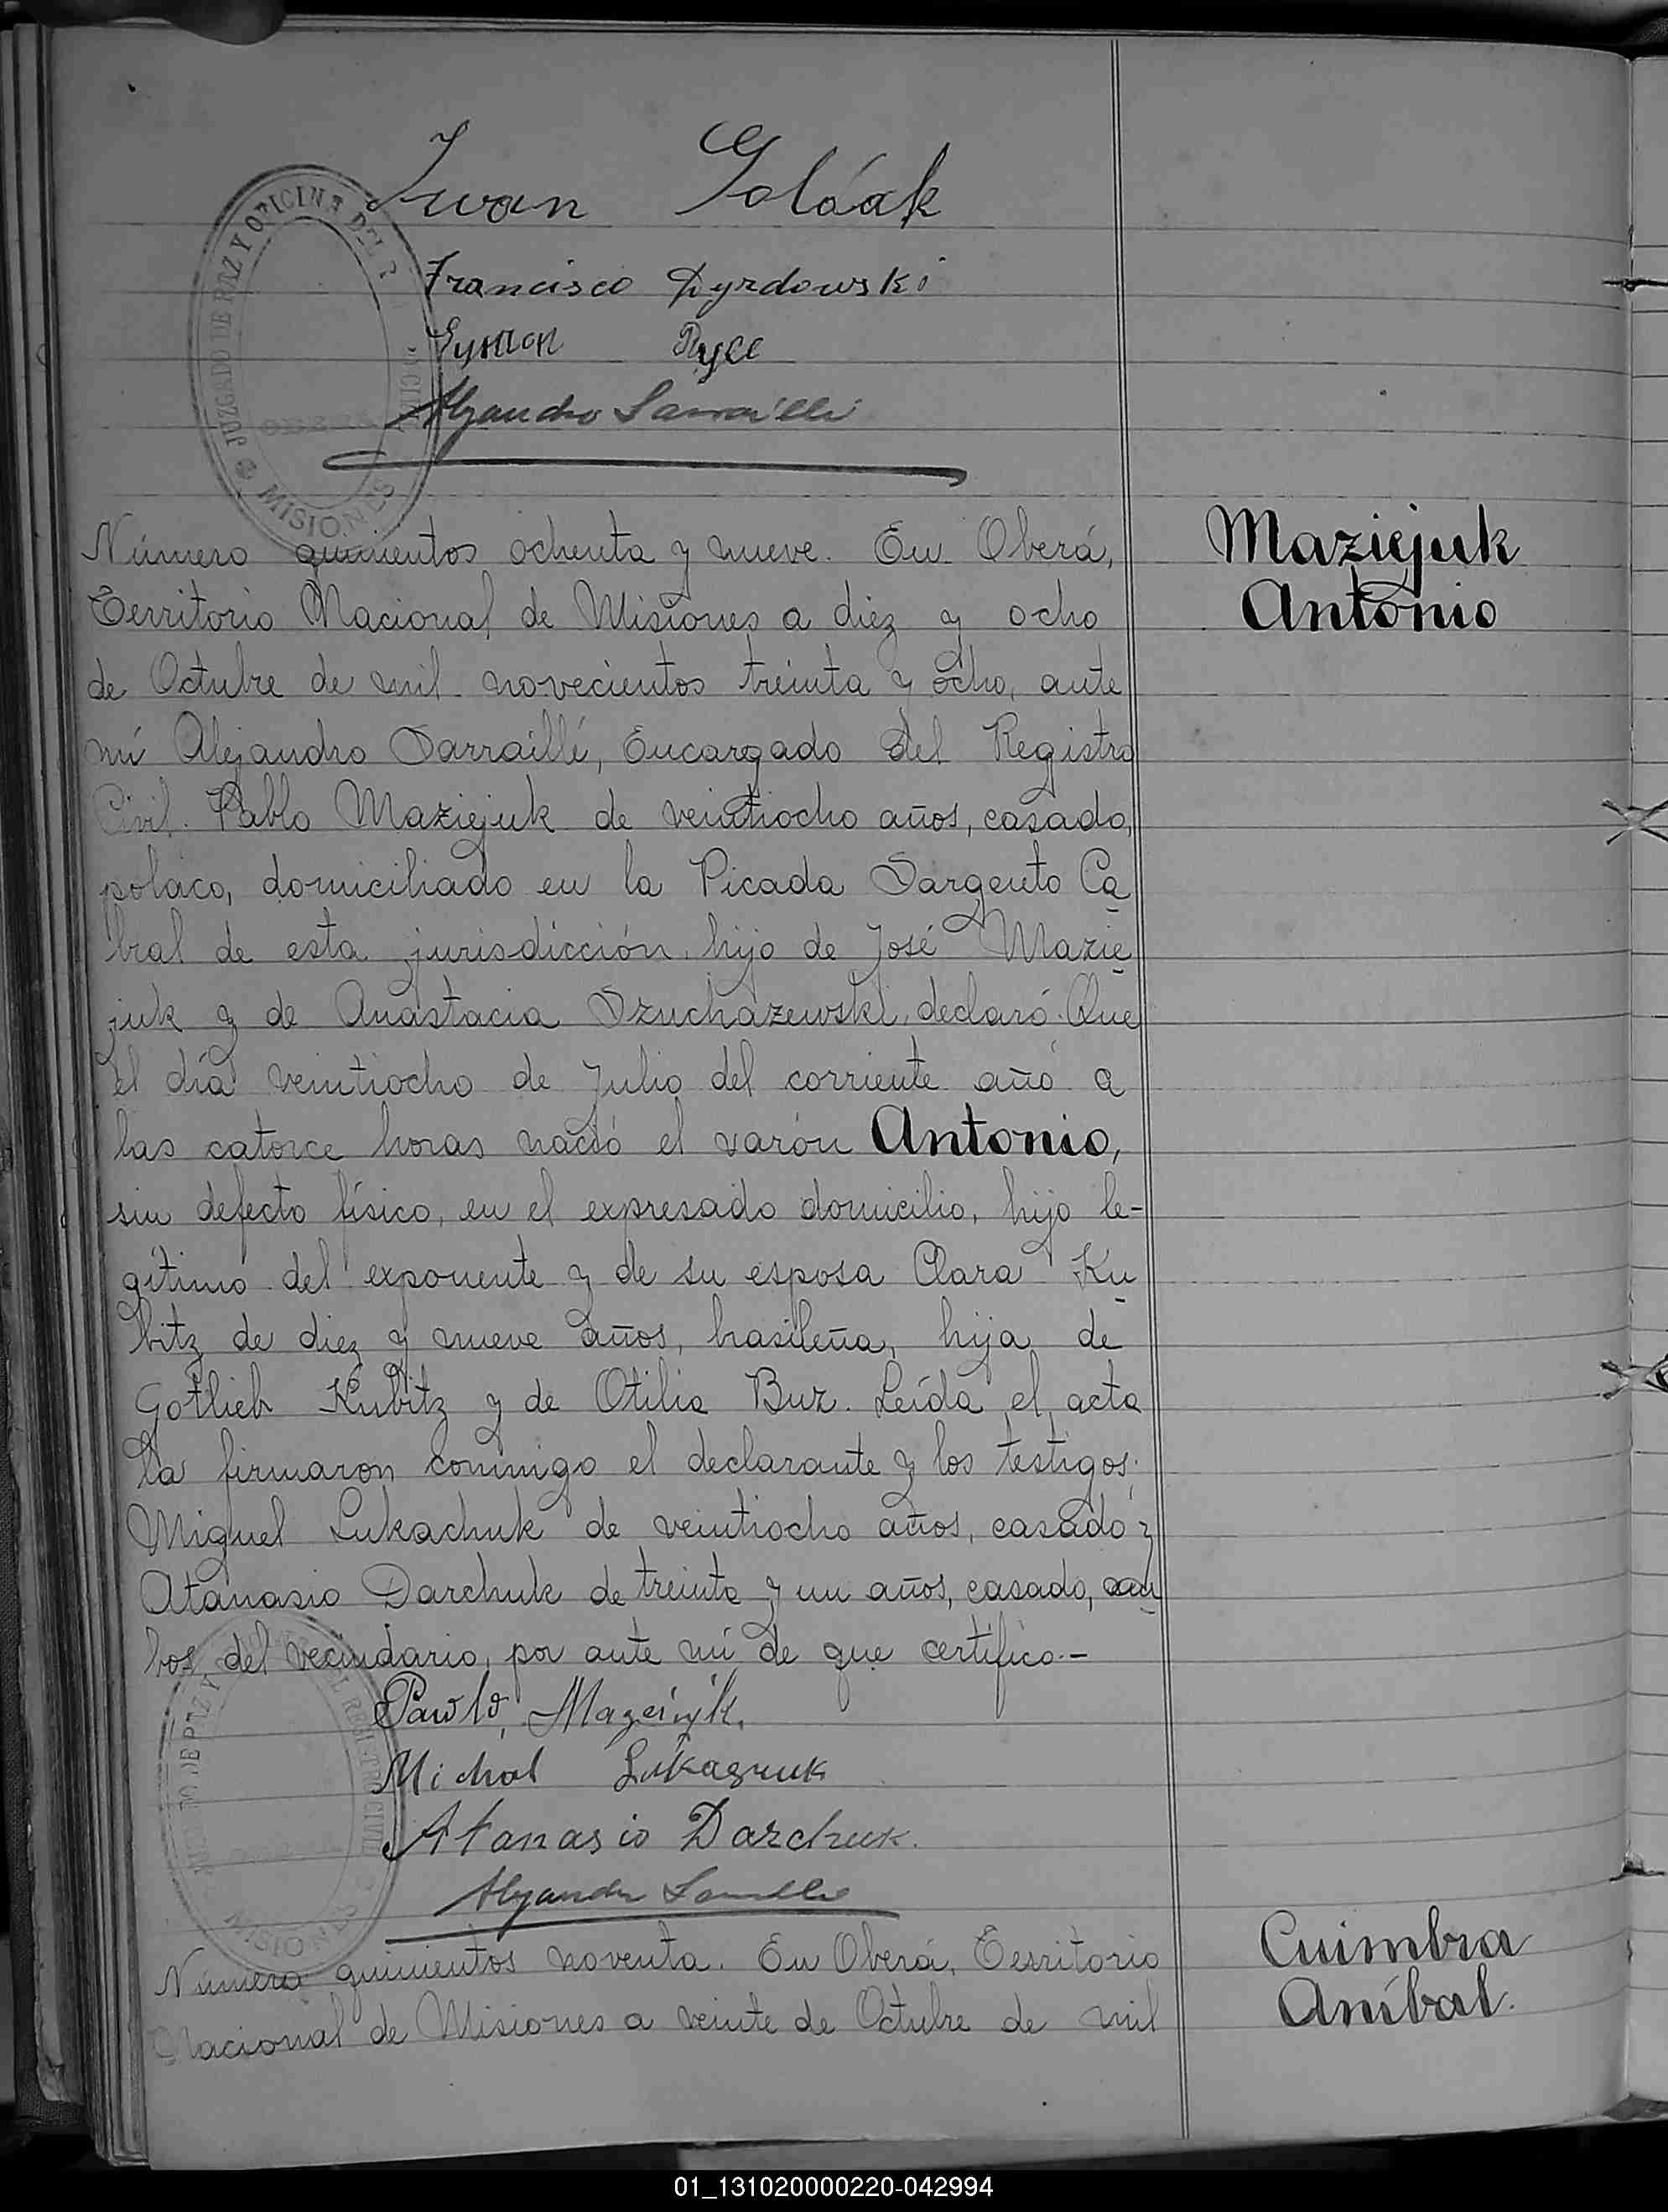 Iwan
Francisco Dyrdowski
JUZGADO DE PAZ Y OFICINA DEL R
CIVIL
MISIONES
Número quinientos ochenta y nueve. En Oberá,
Maziejuk
Territorio Nacional de Misiones a diez y ocho
Antonio
de Octubre de mil novecientos treinta y ocho, ante
mí Alejandro Sarraillé, Encargado del Registro
Civil. Pablo Maziejuk de veintiocho años, casado,
polaco, domiciliado en la Picada Sargento Ca
bral de esta jurisdicción, hijo de José Mazie
juk y de Anastacia Szuchazewski, declaró: Que
el día veintiocho de Julio del corriente año a
las catorce horas nació el varón Antonio,
sin defecto físico, en el expresado domicilio, hijo le-
gítimo del exponente y de su esposa Clara Ku
bitz de diez y nueve años, brasileña, hija de
Gotlieb Kubitz y de Otilia Buz. Leída el acta
la firmaron conmigo el declarante y los testigos:
Miguel Lukachuk de veintiocho años, casado y
Atanasio Darchuk de treinta y un años, casado, am
bos, del vecindario, por ante mí de que certifico.-
Michal
Atanasio Darchuk.
MISIONES
Número quinientos noventa. En Oberá, Territorio
Cuimbra
Nacional de Misiones a veinte de Octubre de mil
Aníbal.
01_131020000220-042994